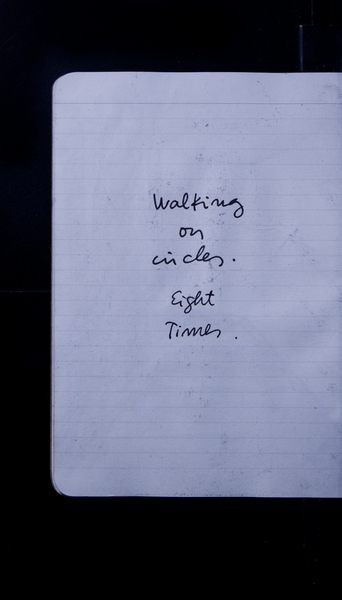 Walking
on
circles.
Eight
Times.